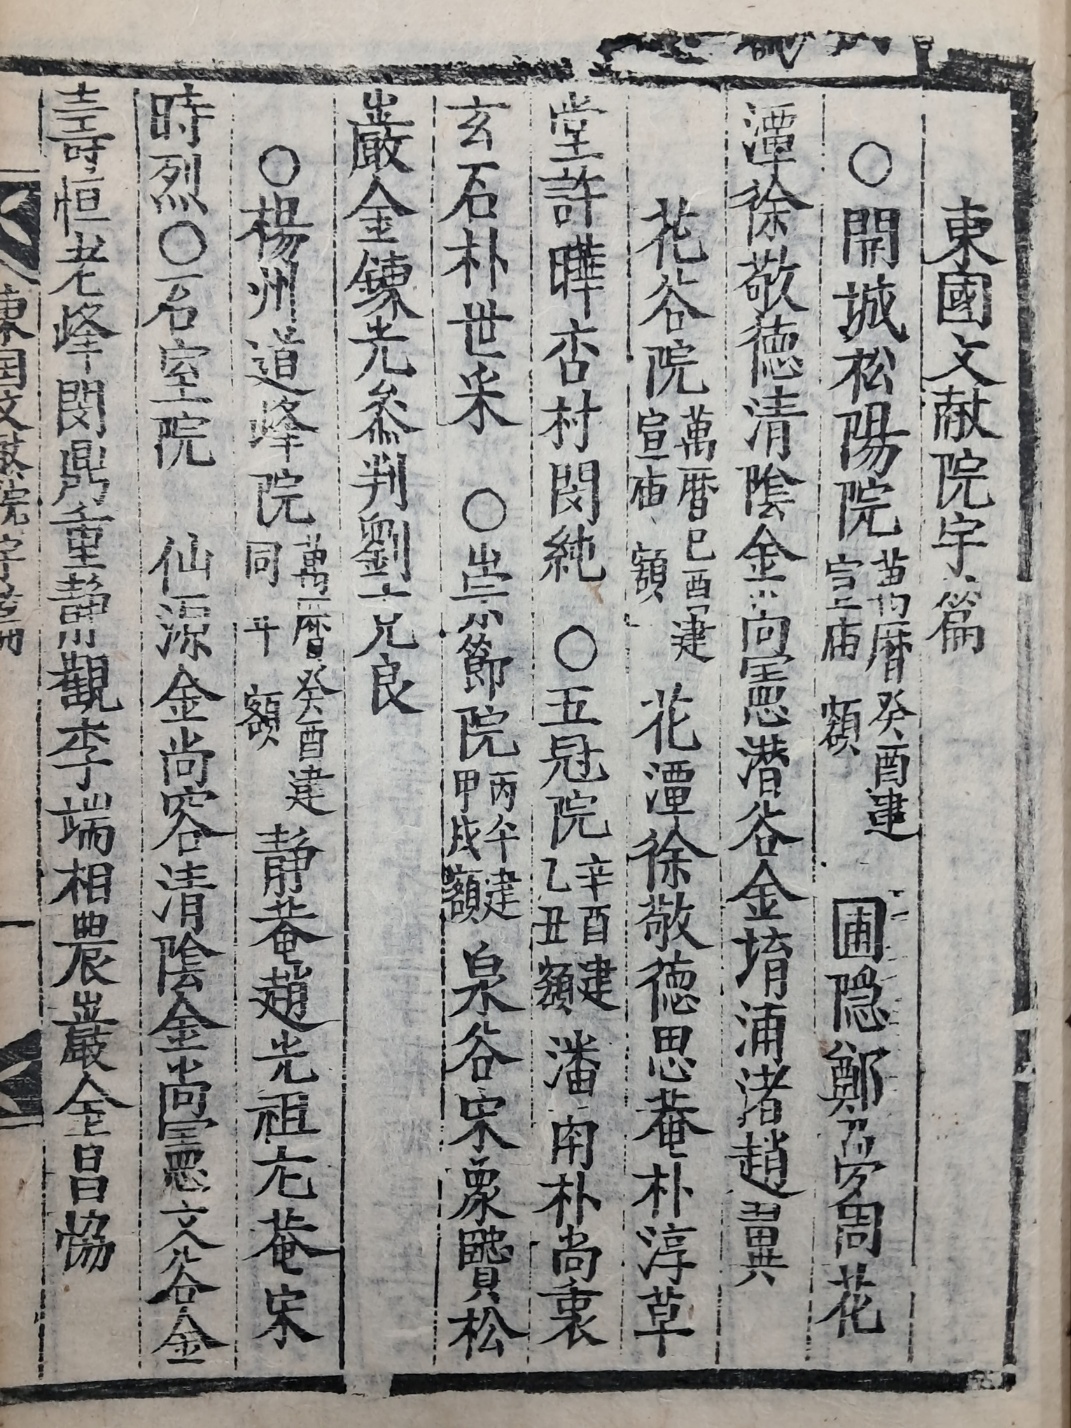 東國文献院宇篇
○開城松陽院萬曆癸酉建宣庙額圃隐鄭夢周花
潭徐敬德清陰金尚憲潜谷金堉浦渚趙翼
花谷院萬曆己酉建宣庙額花潭徐敬德思菴朴淳草
堂許曄杏村閔純○五冠院辛酉建乙丑額潘南朴尚衷
玄石朴世采○崇節院丙午建甲戌額泉谷宋象賢松
巖金鍊光叅判劉克良
○楊州道峰院萬曆癸酉建同年額静菴趙光祖尤菴宋
時烈○石室院仙源金尚容清陰金尚憲文谷金
壽恒老峰閔鼎重静觀李端相農巖金昌協
東国文献院宇篇
一